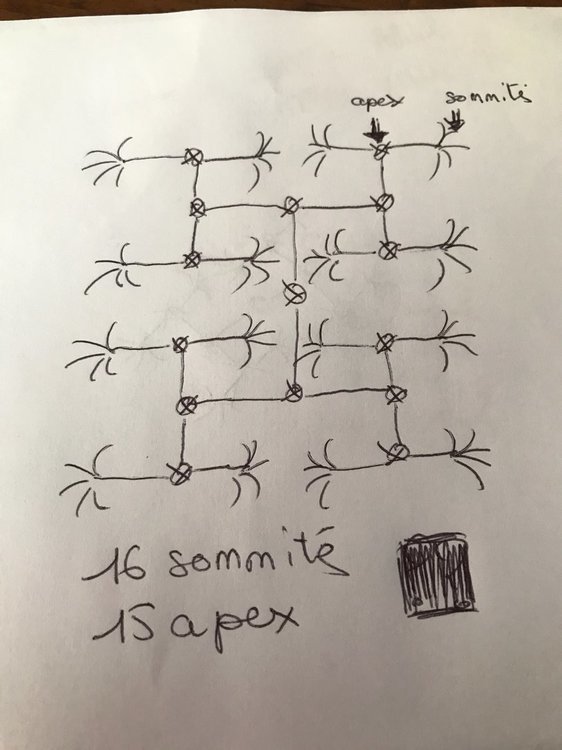 apex sommités
16 sommités
15 apex